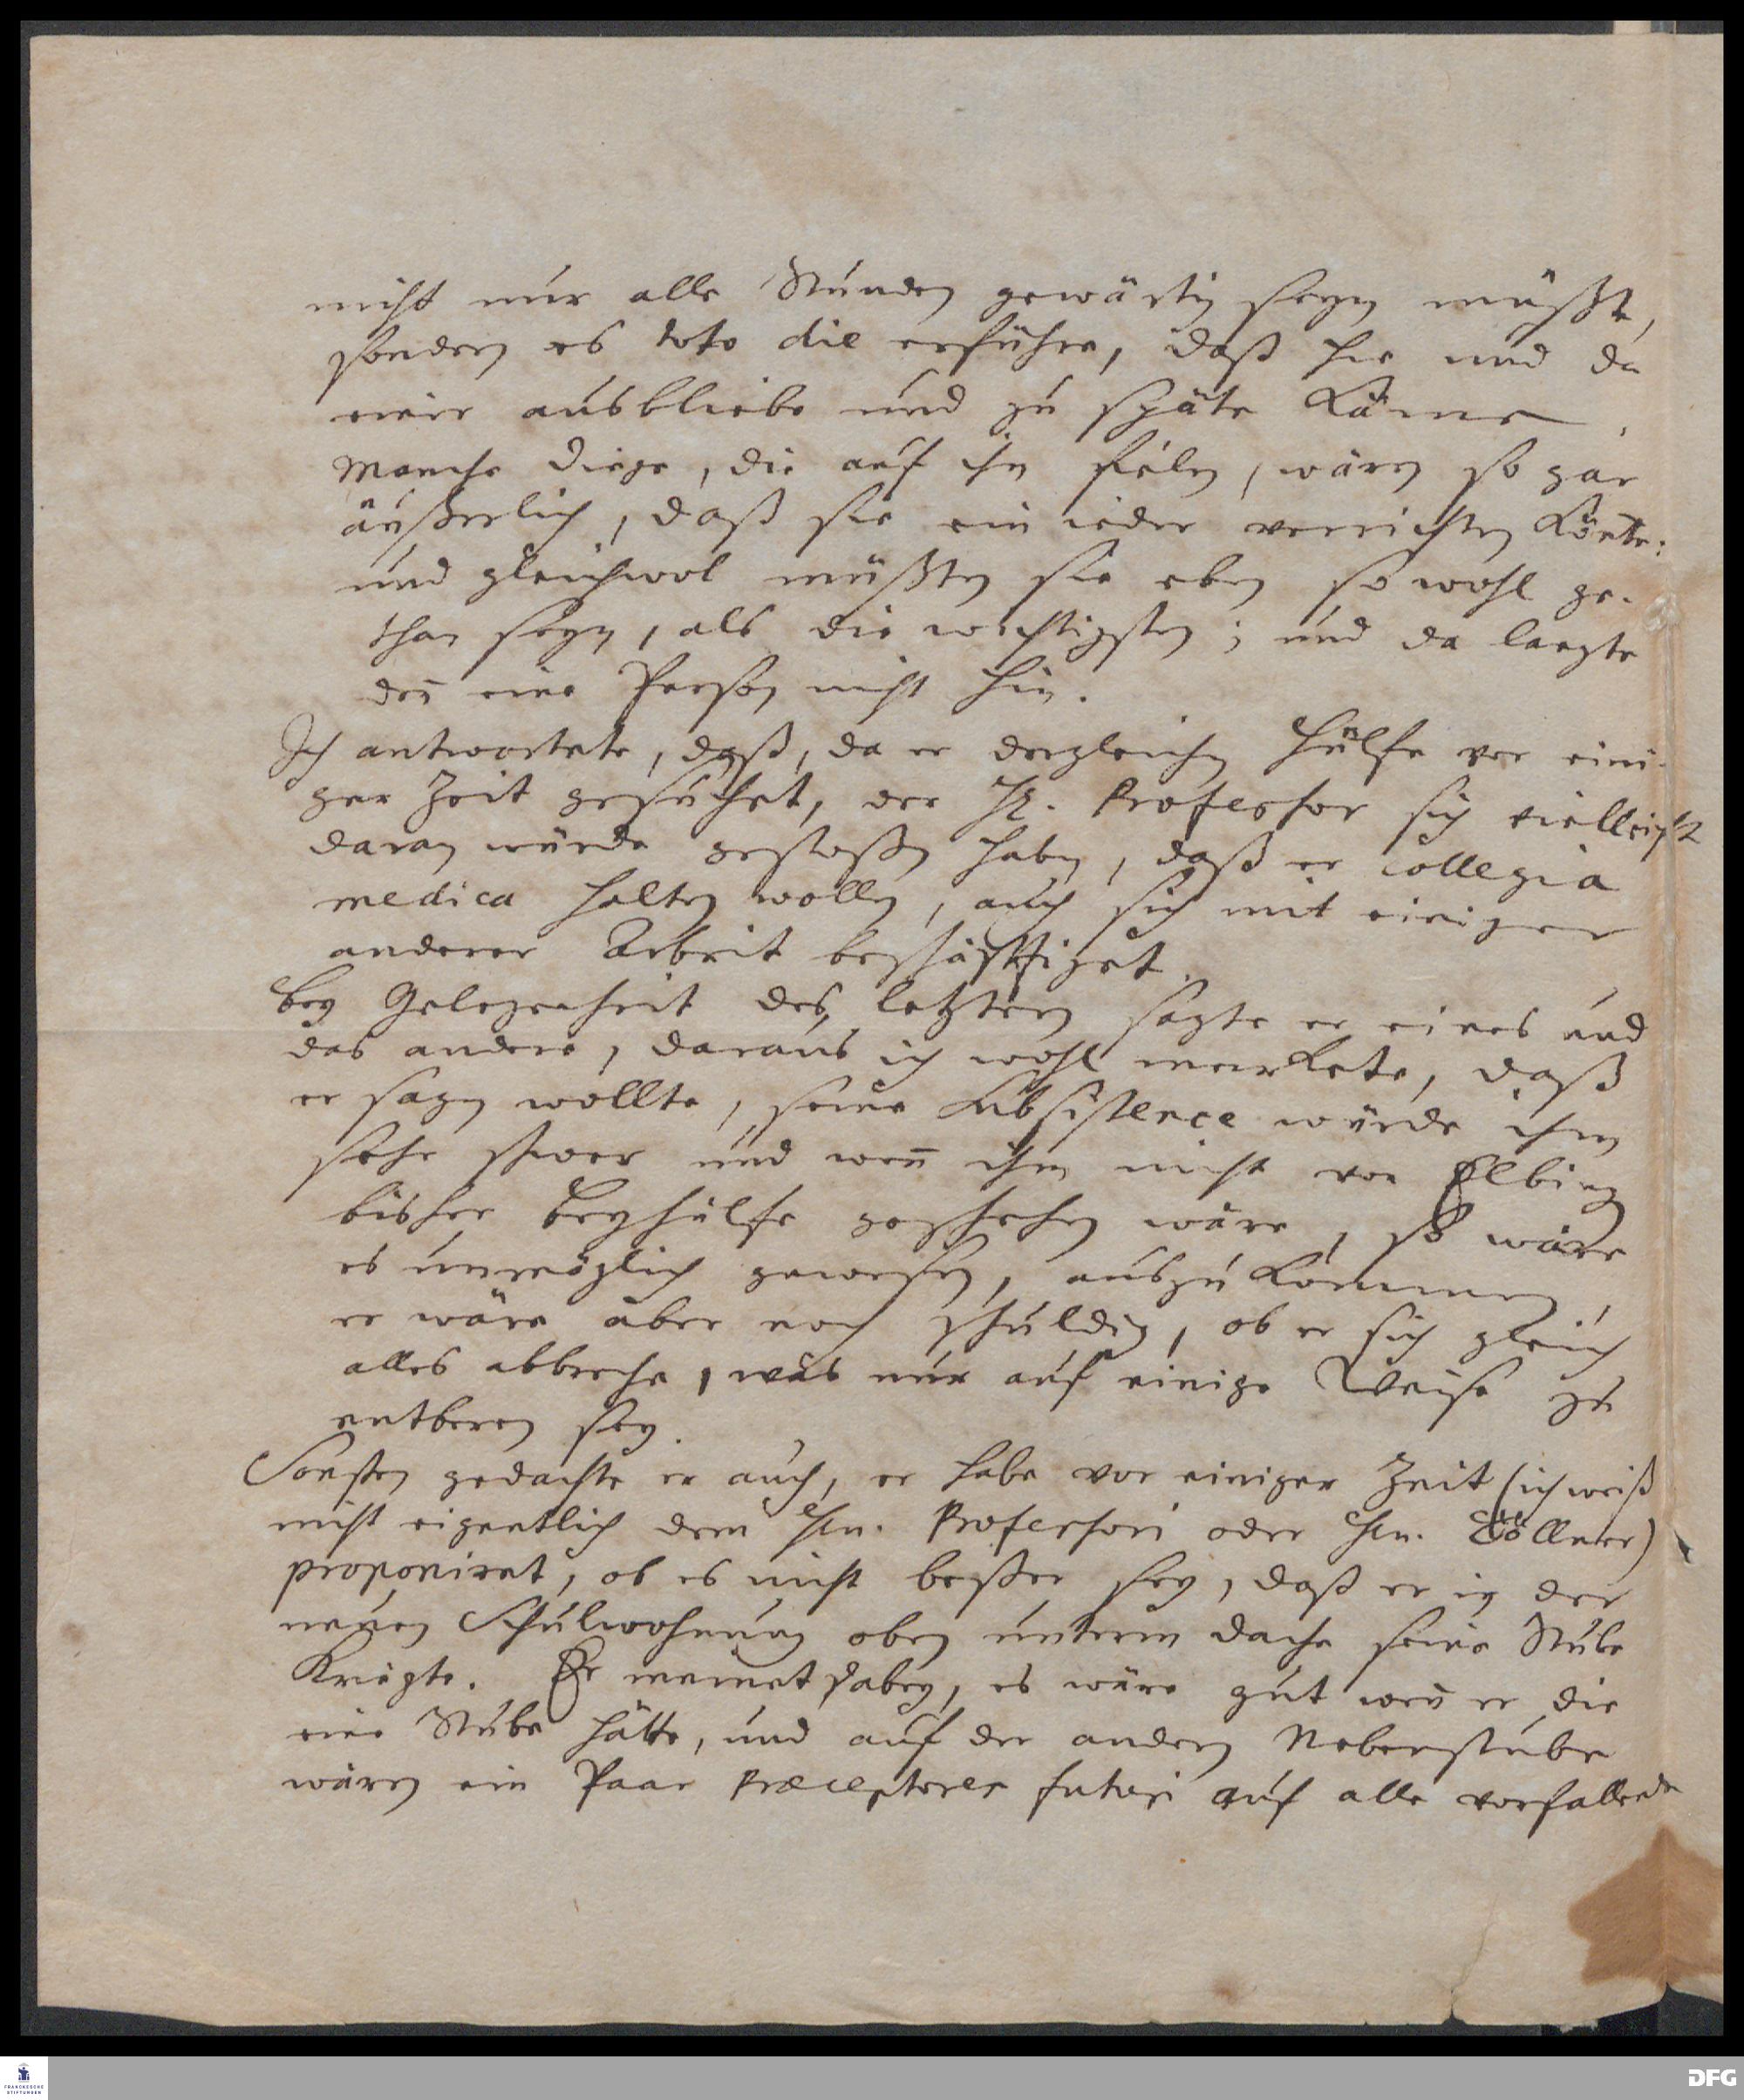 nicht nur alle Stunden gewärtig seyn müßte,
sondern es toto die erführe, daß hie und da
einer ausbliebe und zu späte käme.
Manche Dinge, die auf ihn fielen, wären so gar
äußerlich, daß sie ein ieder verrichten könte:
und gleichwol müßten sie eben so wohl ge-
than seyn, als die wichtigsten; und da langte
deñ eine Person nicht hin.
Ich antwortete, daß, da er dergleichen Hülfe vor eini-
ger Zeit gesuchet, der Hr. Professor sich vielleicht
daran würde gestoßen haben, daß er collegia
medica halten wollen, auch sich mit einiger
anderer Arbeit beschäfftiget.
Bey Gelegenheit des letztern sagte er eines und
das andere, daraus ich wohl merkete, daß
er sagen wollte, seine Subsistence würde ihm
sehr schwer und weñ ihm nicht von Elbing
bisher Beyhülfe geschehen wäre, so wäre
es unmöglich gewesen, auszukommen,
er wäre aber noch schuldig, ob er sich gleich
alles abbreche, was nur auf einige Weise zu
entberen sey.
Sonsten gedachte er auch, er habe vor einiger Zeit (ich weiß
nicht eigentlich dem Hn. Professori oder Hn. Töllner)
proponiret, ob es nicht beßer sey, daß er in der
neuen Schulwohnung oben unterm Dache seine Stube
kriegte. Er meinet dabey, es wäre gut weñ er die
eine Stube hätte, und auf der andern Nebenstube
wären ein Paar Præceptores futuri auf alle vorfallende
FRANCKESCHE
STIFTUNGEN
DFG